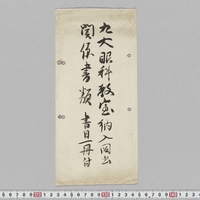 九大眼科教室納入図書
関係書類 書目一冊付